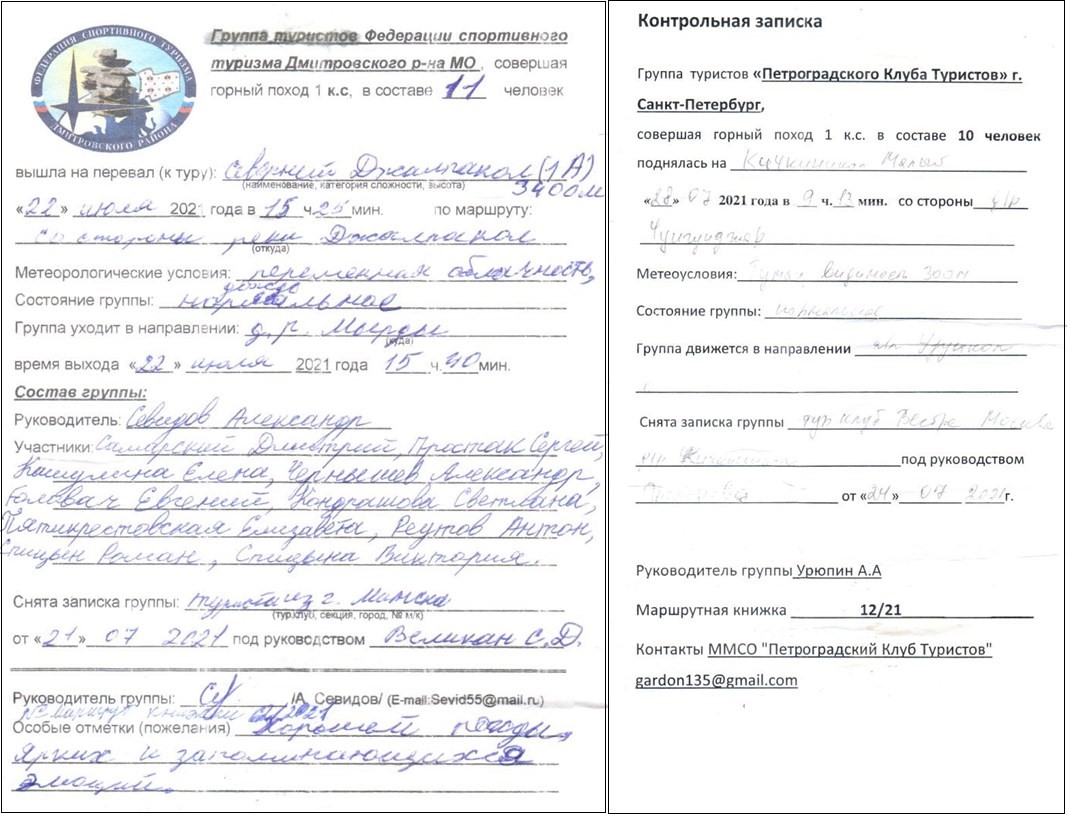 ФЕДЕРАЦИЯ СПОРТИВНОГО ТУРИЗМА
ДМИТРОВСКОГО РАЙОНА
Группа туристов Федерации спортивного
туризма Дмитровского р-на МО , совершая
горный поход 1 к.с, в составе 11 человек
вышла на перевал (к туру): Северный Джалпакол (1А)
(наименование, категория сложности, высота)
3400м
«22» июля 2021 года в 15 ч.25 мин. по маршруту:
со стороны реки Джалпакол
(откуда)
Метеорологические условия: переменная облачность,
дождь
Состояние группы: нормальное
Группа уходит в направлении: д.р. Мырды
(куда)
время выхода «22» июля 2021 года 15 ч.40 мин.
Состав группы:
Руководитель: Севидов Александр
Участники: Самарский Дмитрий, Простак Сергей,
Кашулина Елена, Чернышев Александр,
Головач Евгений, Кондрашова Светлана,
Пятикрестовская Елизавета, Реутов Антон,
Спицын Роман, Спицына Виктория.
Снята записка группы: туристы из г. Минска
(тур.клуб, секция, город, № м/к)
от «21» 07 2021 под руководством Великан С.Д.
Руководитель группы: /А. Севидов/ (E-mail:Sevid55@mail.ru)
№ маршрут книжки 2021
Особые отметки (пожелания) Хорошей погоды,
ярких и запоминающихся
эмоций.
Контрольная записка
Группа туристов «Петроградского Клуба Туристов» г.
Санкт-Петербург,
совершая горный поход 1 к.с. в составе 10 человек
поднялась на Малый
«28» 07 2021 года в 9 ч. 13 мин. со стороны
Метеоусловия: Туман, видимость 300м
Состояние группы: нормальное
Группа движется в направлении
Снята записка группы тур клуб Вестра Москва
под руководством
от «24» 07 2021г.
Руководитель группы Урюпин А.А
Маршрутная книжка 12/21
Контакты ММСО "Петроградский Клуб Туристов"
gardon135@gmail.com